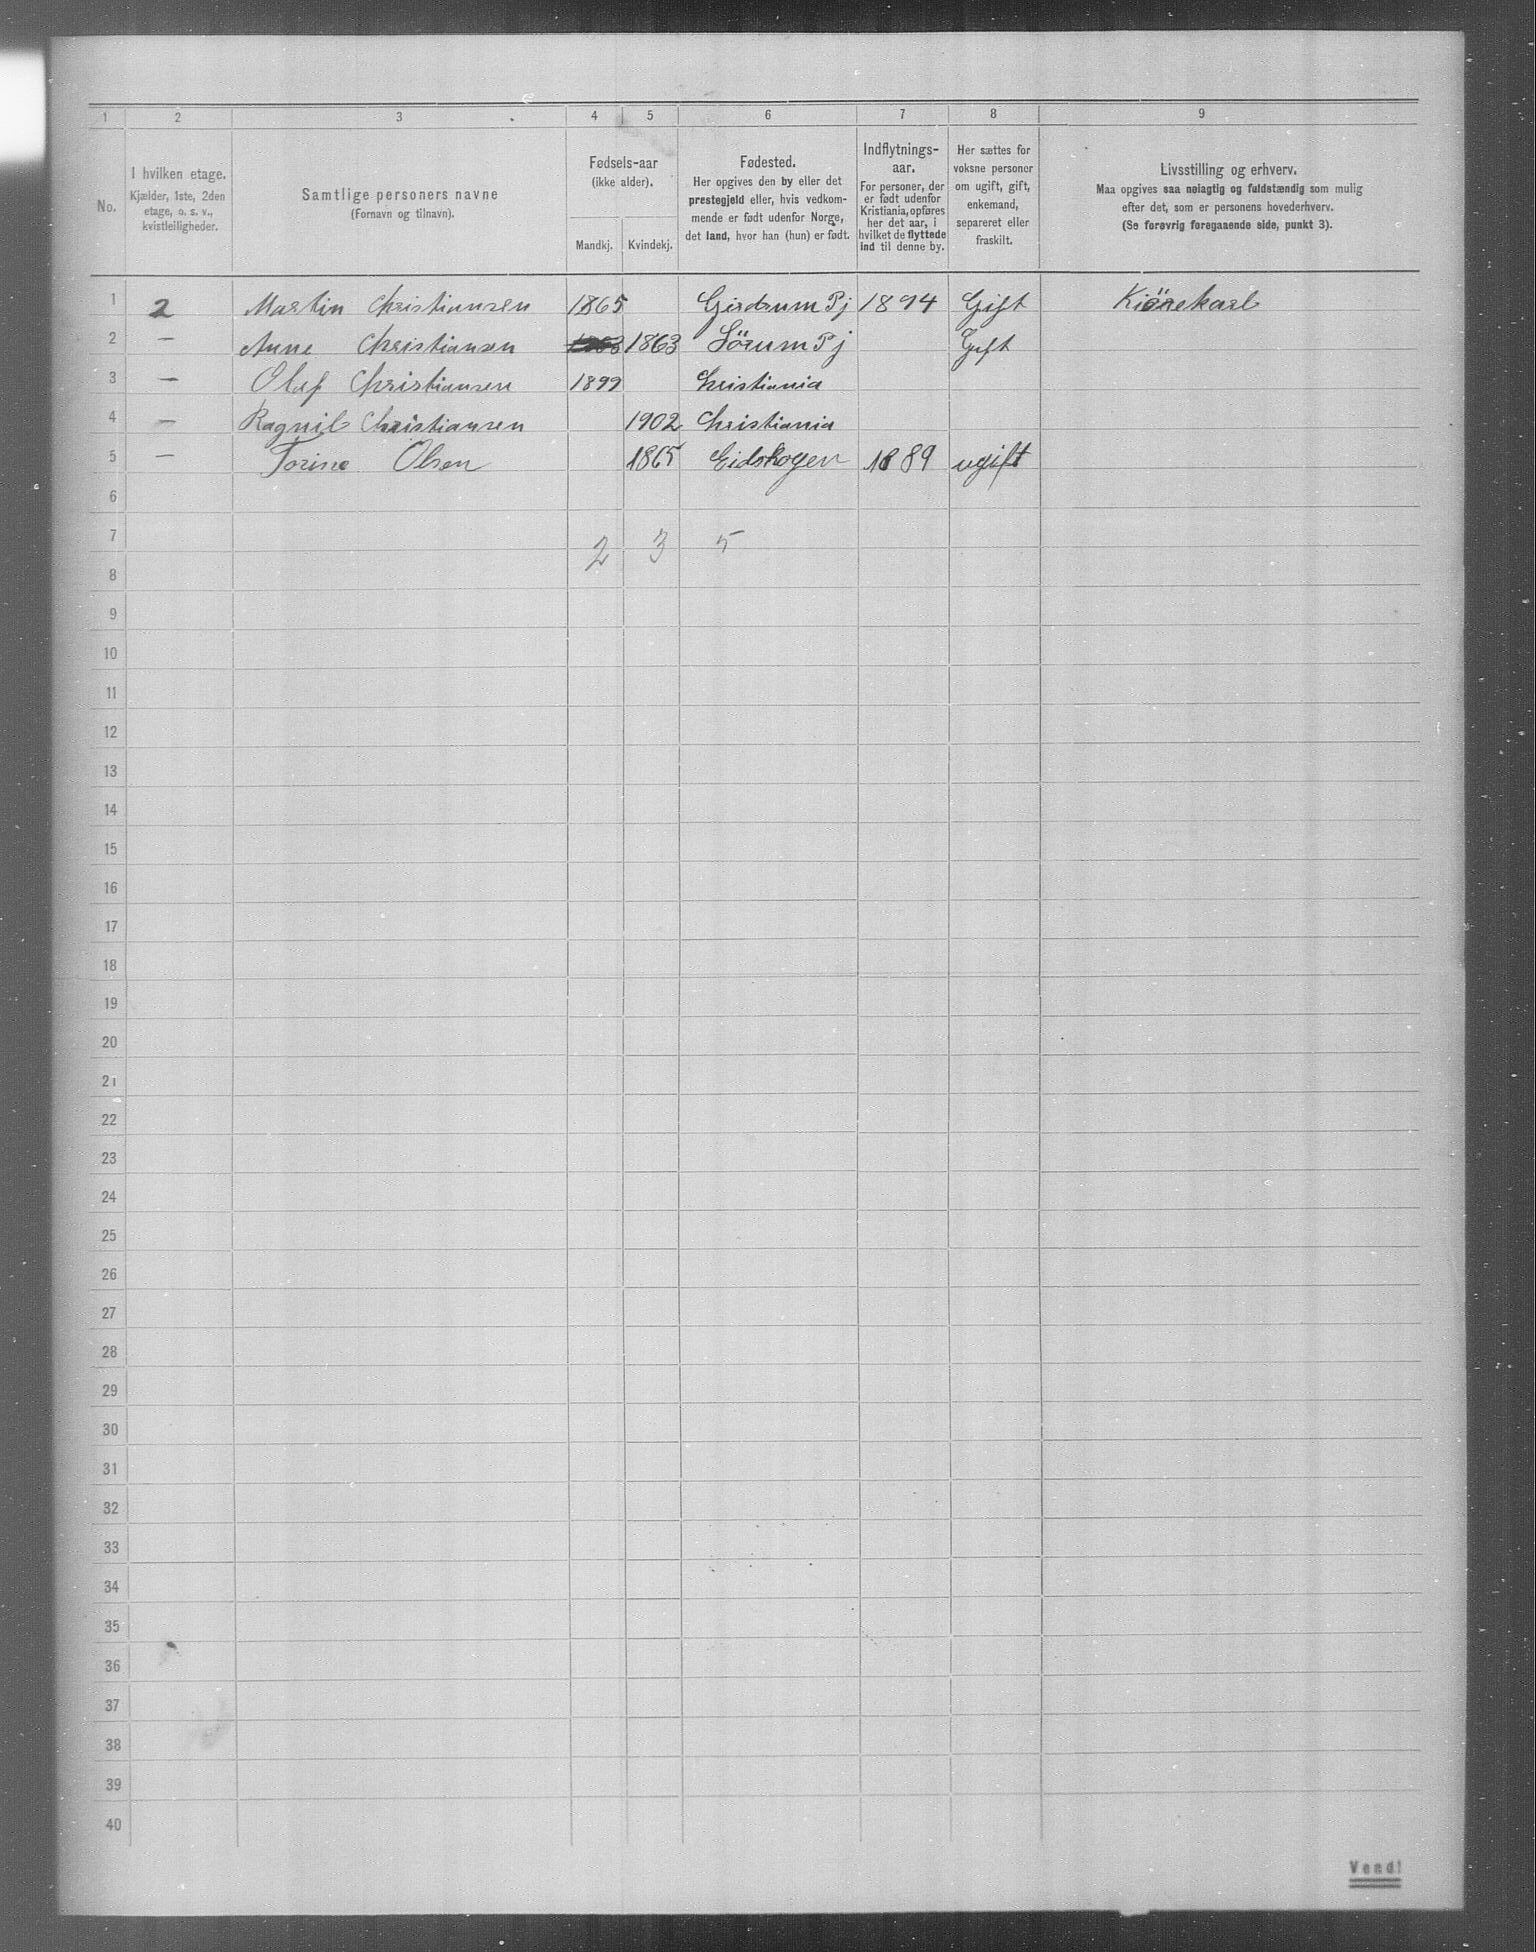 1 2 3 4 5 6 7 8 9
No.
I hvilken etage.
Kjælder, 1ste, 2den
etage, o. s. v.,
kvistleiligheder.
Samtlige personers navne
(Fornavn og tilnavn).
Fødsels-aar
(ikke alder).
Mandkj. Kvindekj.
Fødested.
Her opgives den by eller det
prestegjeld eller, hvis vedkom-
mende er født udenfor Norge,
det land, hvor han (hun) er født.
Indflytnings-
aar.
For personer, der
er født udenfor
Kristiania, opføres
her det aar, i
hvilket de flyttede
ind til denne by.
Her sættes for
voksne personer
om ugift, gift,
enkemand,
separeret eller
fraskilt.
Livsstilling og erhverv.
Maa opgives saa nøiagtig og fuldstændig som mulig
efter det, som er personens hovederhverv.
(Se forøvrig foregaaende side, punkt 3).
1 2 Martin Christiansen 1865 Gierdrum Pj 1894 Gift Kiörekarl
2 — Anne Christiansen 1863 1863 Sörum Pj Gift
3 — Olaf Christiansen 1899 Christiania
4 — Ragnil Christiansen 1902 Christiania
5 — Torine Olsen 1865 Eidskogen 1889 ugift
6
7 2 3 5
8
9
10
11
12
13
14
15
16
17
18
19
20
21
22
23
24
25
26
27
28
29
30
31
32
33
34
35
36
37
38
39
40
Vend!